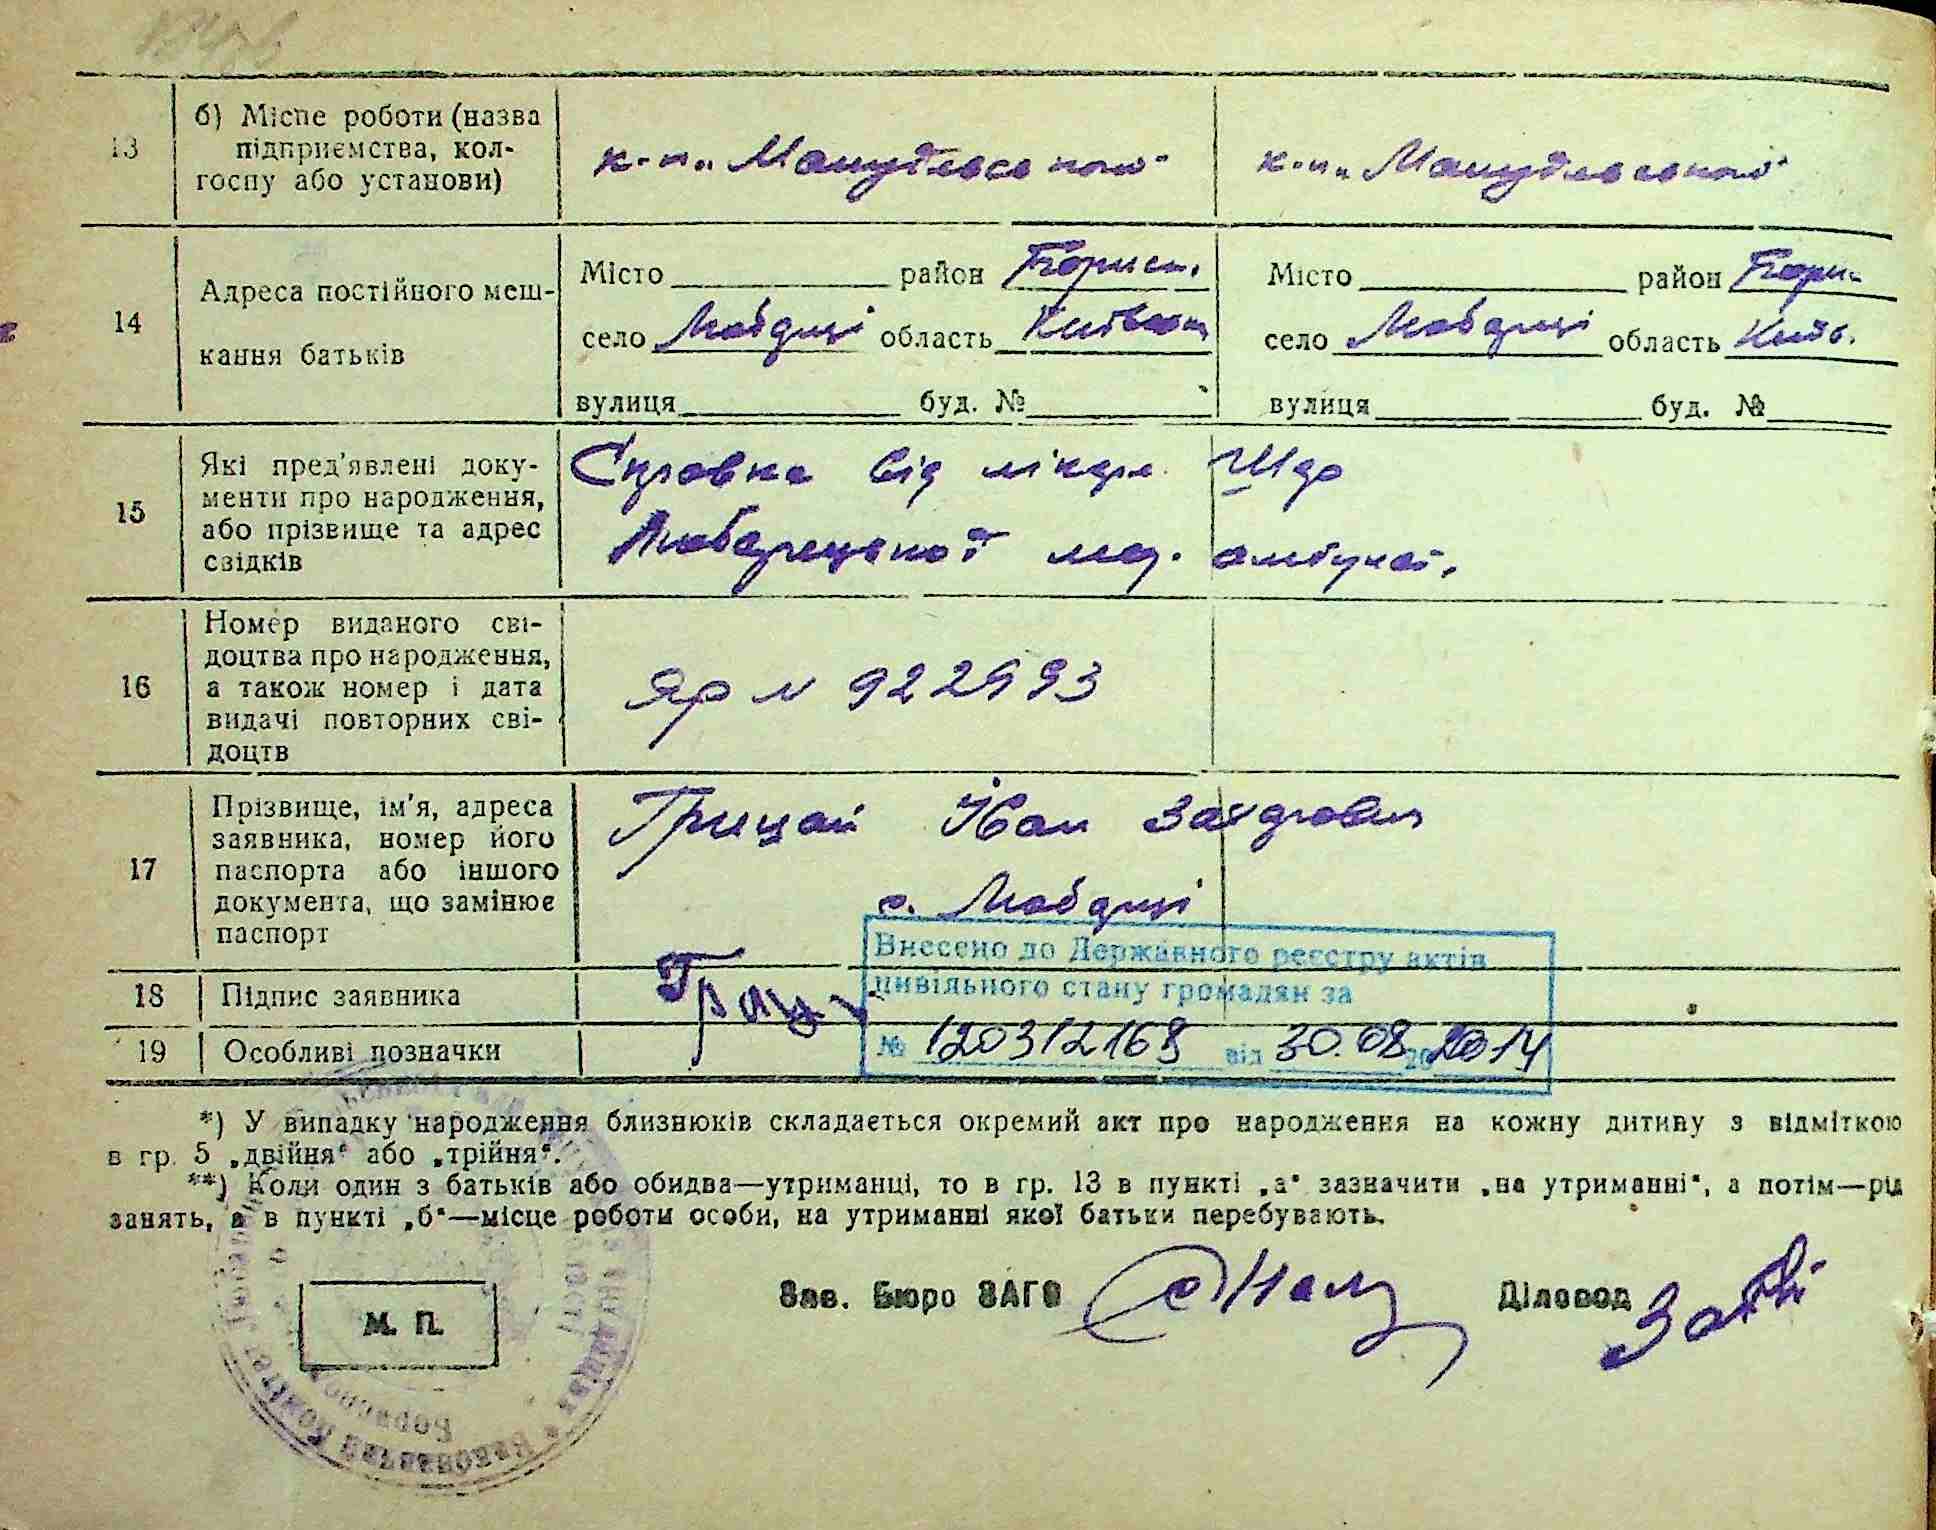 13 б) Місце роботи (назва підприємства, кол-
госпу або установи)
14 Адреса постійного меш-
кання батьків
Місто район Борисп. Місто район Борис.
село Любарці область Київськ село Любарці область Київ.
вулиця буд. № вулиця буд. №
15 Які пред'явлені доку-
менти про народження,
або прізвище та адрес
свідків
Справка від лікар.
Любарецької мед. амбулат.
16 Номер виданого сві-
доцтва про народження,
а також номер і дата
видачі повторних сві-
доцтв
ЯР № 922993
17 Прізвище, ім'я, адреса
заявника, номер його
паспорта або іншого
документа, що замінює
паспорт
Грицай Іван Захарович
с. Любарці
Внесено до Державного реєстру актів
цивільного стану громадян за
№ 120312168 від 30.08.2014
18 Підпис заявника Гриц
19 Особливі позначки
*) У випадку народження близнюків складається окремий акт про народження на кожну дитину з відміткою
в гр. 5 „двійня“ або „трійня“.
**) Коли один з батьків або обидва—утриманці, то в гр. 13 в пункті „а“ зазначити „на утриманні“, а потім—рід
занять, а в пункті „б“—місце роботи особи, на утриманні якої батьки перебувають.
Зав. Бюро ЗАГС Діловод
М. П.
Виконавчий Комітет